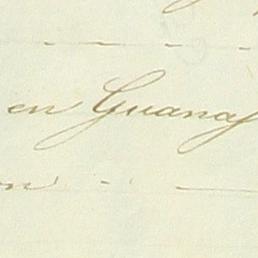 en Guanaj
on